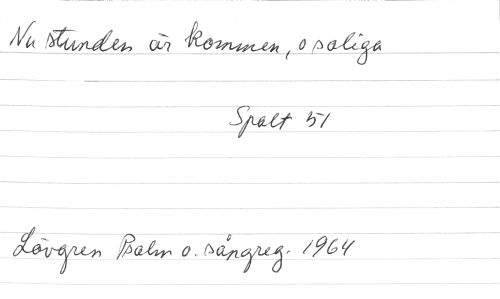 Nu stunden är kommen, o saliga
Spalt 51
Lövgren Psalm o. sångreg. 1964